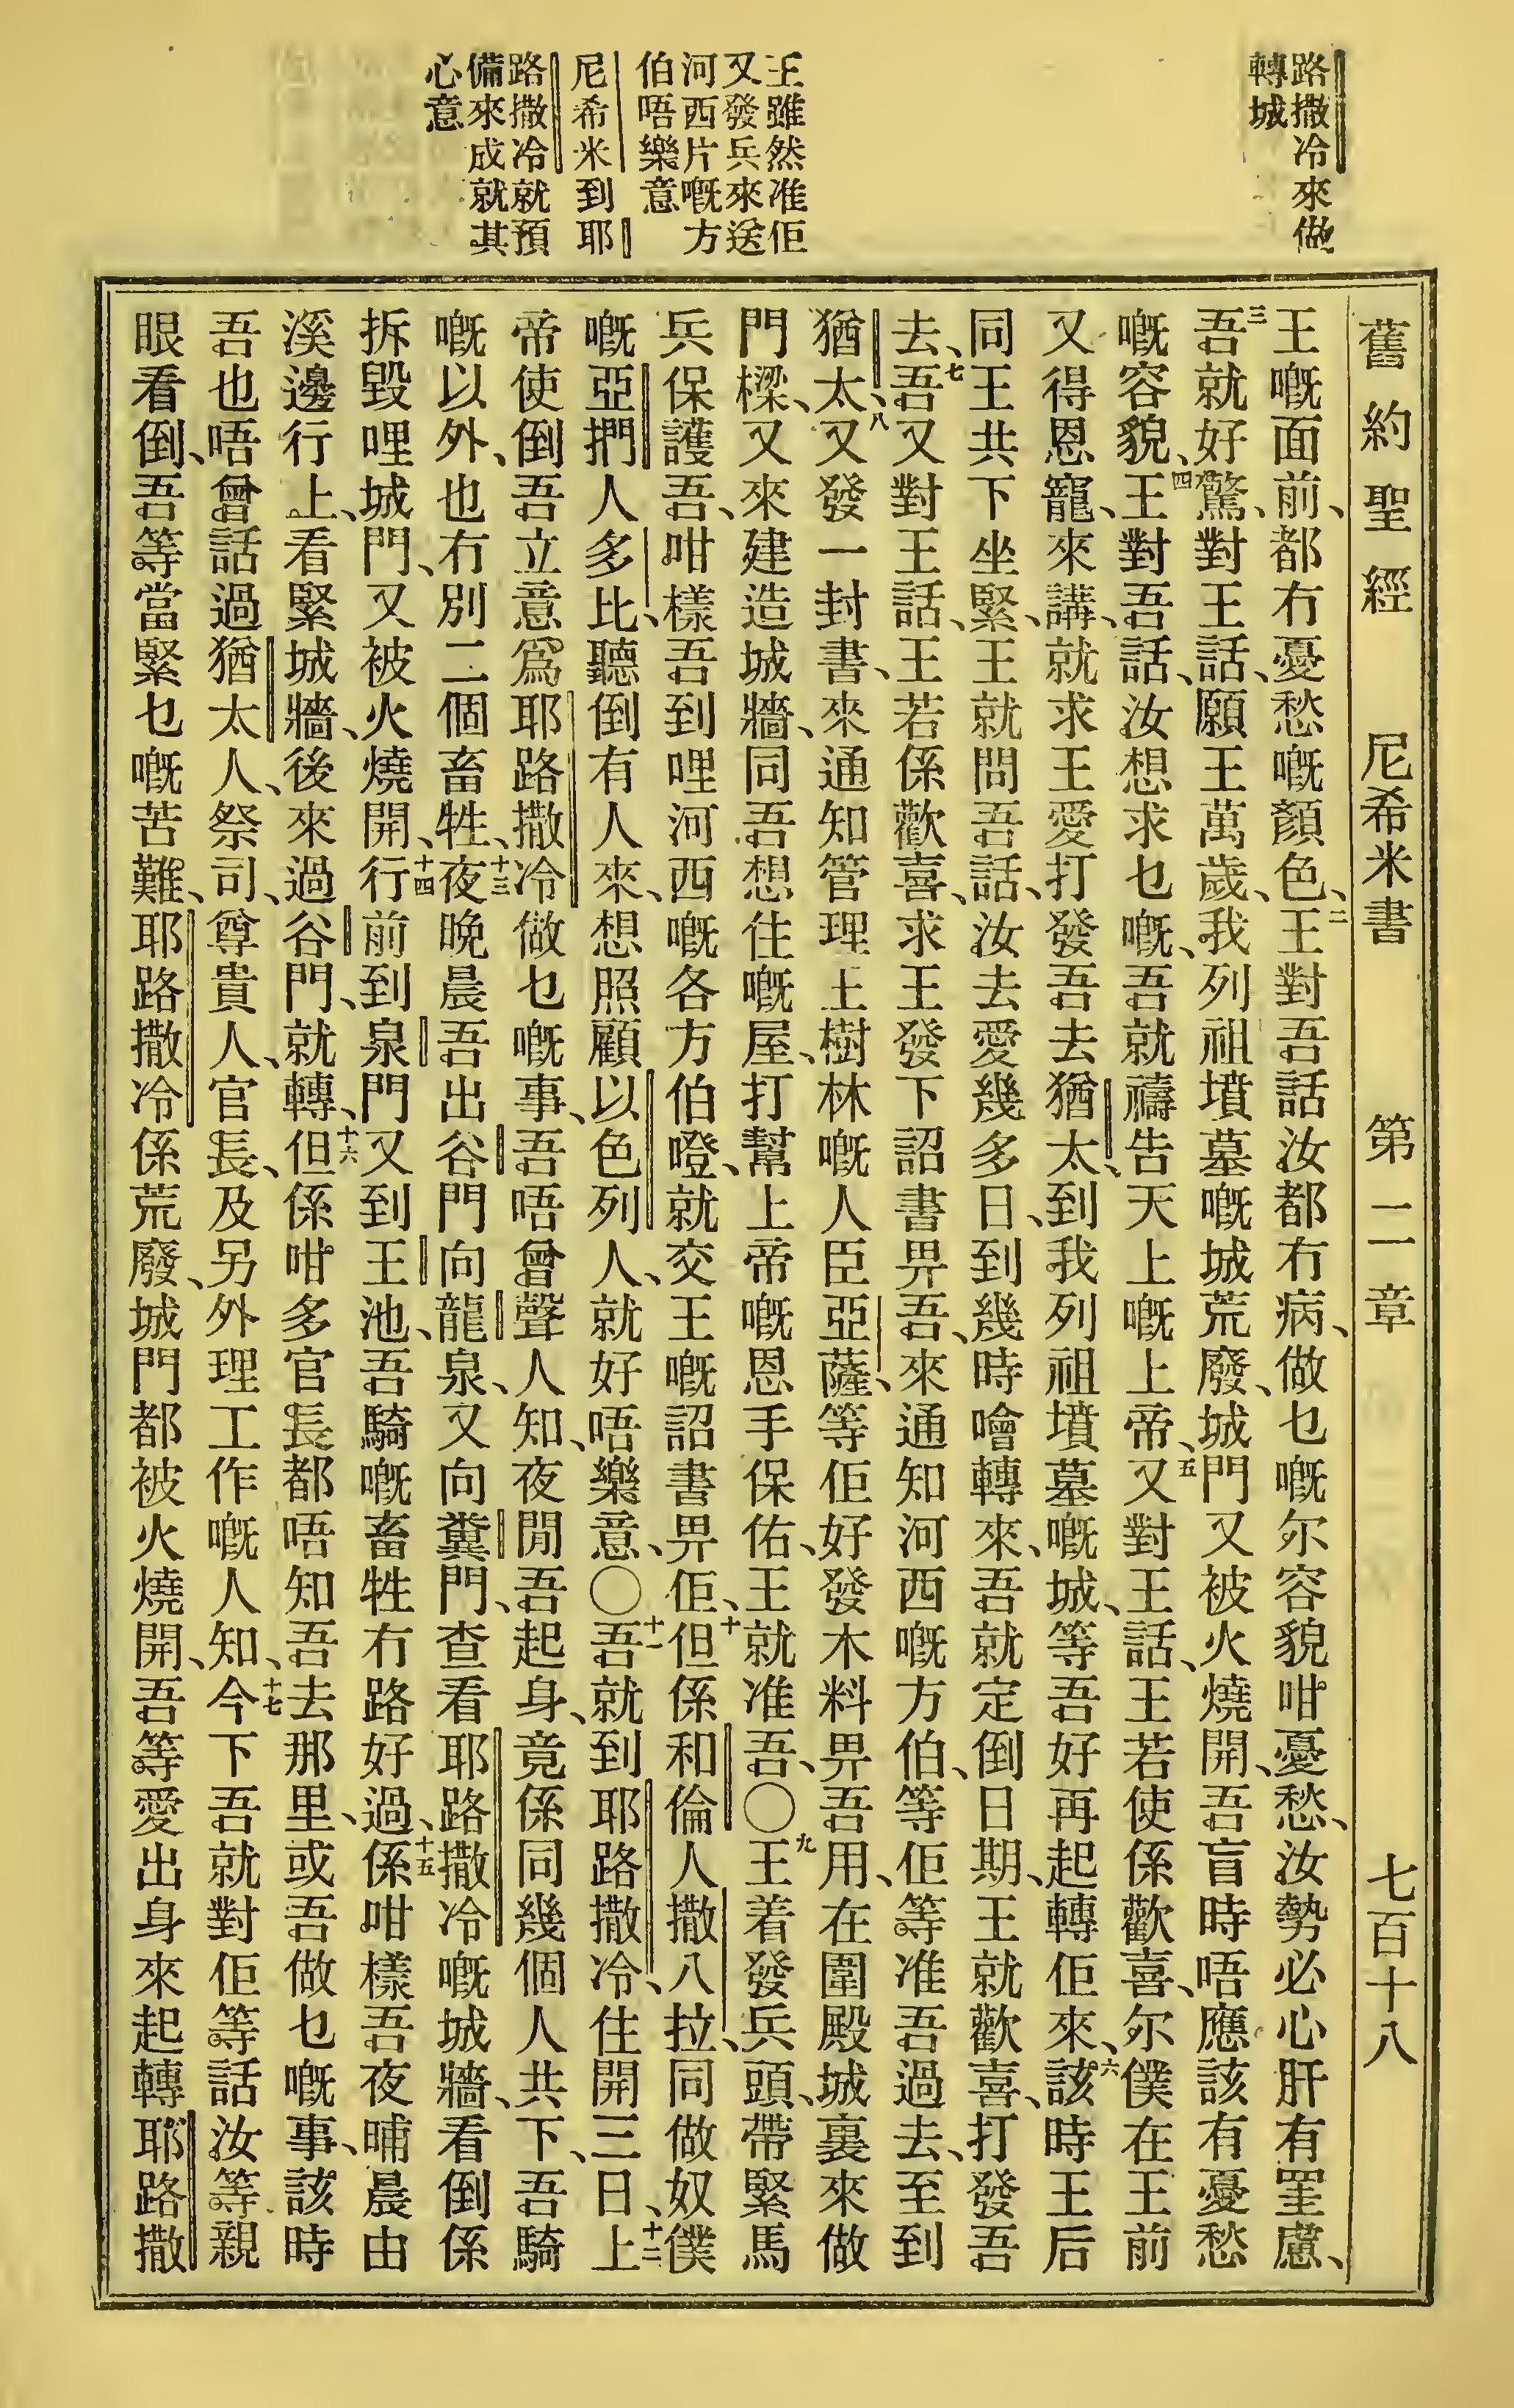 路撒冷來做
轉城
王雖然准佢
又發兵來送
河西片嘅方
伯唔樂意
尼希米到耶
路撒冷就預
備來成就其
心意
舊約聖經 尼希米書 第二章 七百十八
王嘅面前、都冇憂愁嘅顏色、二王對吾話汝都冇病、做乜嘅尔容貌咁憂愁、汝勢必心肝有罣慮、
三吾就好驚、對王話、願王萬歲、我列祖墳墓嘅城荒廢、城門又被火燒開、吾盲時唔應該有憂愁
嘅容貌、四王對吾話、汝想求乜嘅、吾就禱告天上嘅上帝、五又對王話、王若使係歡喜、尔僕在王前
又得恩寵、來講、就求王愛打發吾去猶太、到我列祖墳墓嘅城、等吾好再起轉佢來、六該時王后
同王共下坐緊、王就問吾話、汝去愛幾多日、到幾時噲轉來、吾就定倒日期、王就歡喜、打發吾
去、七吾又對王話、王若係歡喜、求王發下詔書畀吾、來通知河西嘅方伯、等佢等准吾過去、至到
猶太、八又發一封書、來通知管理王樹林嘅人臣亞薩、等佢好發木料畀吾用、在圍殿城裏來做
門樑、又來建造城牆、同吾想住嘅屋、打幫上帝嘅恩手保佑、王就准吾、〇九王着發兵頭、帶緊馬
兵保護吾、咁樣吾到哩河西嘅各方伯嶝、就交王嘅詔書畀佢、十但係和倫人撒八拉、同做奴僕
嘅亞捫人多比、聽倒有人來、想照顧以色列人、就好唔樂意、〇十一吾就到耶路撒冷、住開三日、十二上
帝使倒吾立意爲耶路撒冷做乜嘅事、吾唔曾聲人知、夜間吾起身、竟係同幾個人共下、吾騎
嘅以外、也冇別二個畜牲、十三夜晚晨吾出谷門向龍泉、又向糞門、查看耶路撒冷嘅城牆、看倒係
拆毀哩城門、又被火燒開、十四行前到泉門又到王池、吾騎嘅畜牲冇路好過、十五係咁樣吾夜晡晨由
溪邊行上、看緊城牆、後來過谷門、就轉、十六但係咁多官長都唔知吾去那里、或吾做乜嘅事、該時
吾也唔曾話過猶太人、祭司、尊貴人、官長、及另外理工作嘅人知、十七今下吾就對佢等話汝等親
眼看倒、吾等當緊乜嘅苦難、耶路撒冷係荒廢、城門都被火燒開、吾等愛出身來起轉耶路撒